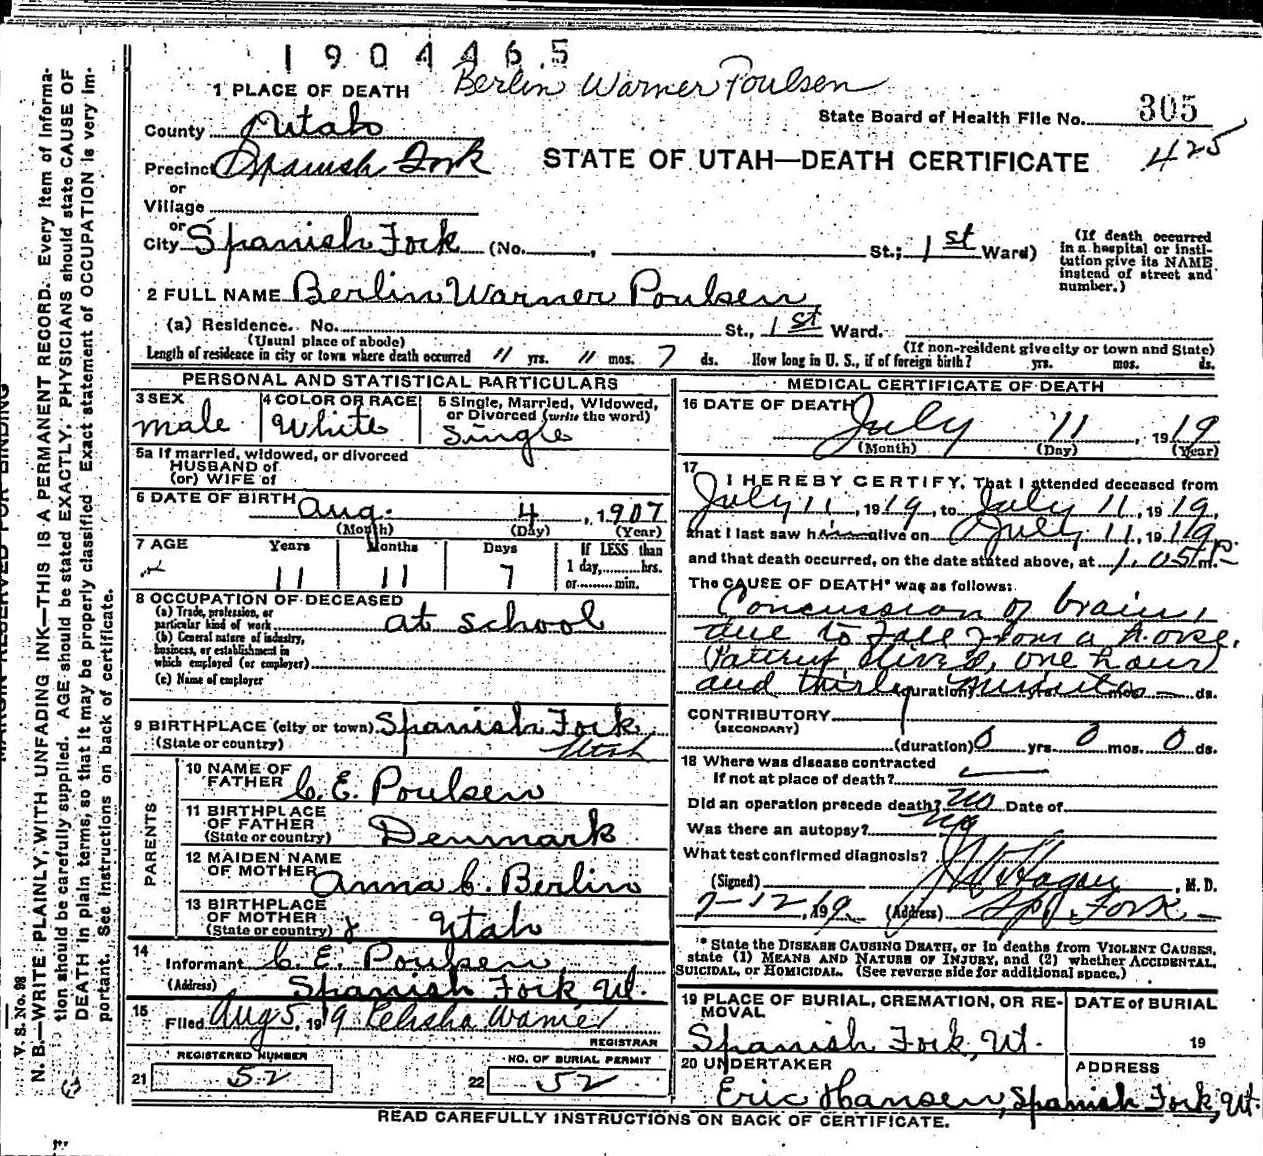 1904465
Berlin Warner Poulsen
1 PLACE OF DEATH
State Board of Health File No. 305
County Utah
425
STATE OF UTAH—DEATH CERTIFICATE
Precinct Spanish Fork
or
Village
or
City Spanish Fork (No. , St.; 1st Ward)
(If death occurred in a hospital or institution give its NAME instead of street and number.)
2 FULL NAME Berlin Warner Poulsen
(a) Residence. No. St., 1st Ward.
(Usual place of abode)
(If non-resident give city or town and State)
Length of residence in city or town where death occurred 11 yrs. 11 mos. 7 ds. How long in U. S., if of foreign birth? yrs. mos. ds.
PERSONAL AND STATISTICAL PARTICULARS
3 SEX
male
4 COLOR OR RACE
White
5 Single, Married, Widowed, or Divorced (write the word)
Single
5a If married, widowed, or divorced
HUSBAND of
(or) WIFE of
6 DATE OF BIRTH Aug. 4, 1907
(Month) (Day) (Year)
7 AGE Years Months Days
11 11 7
If LESS than
1 day, hrs.
or min.
8 OCCUPATION OF DECEASED
(a) Trade, profession, or
particular kind of work at school
(b) General nature of industry,
business, or establishment in
which employed (or employer)
(c) Name of employer
9 BIRTHPLACE (city or town) Spanish Fork,
(State or country) Utah
PARENTS
10 NAME OF
FATHER C. E. Poulsen
11 BIRTHPLACE
OF FATHER
(State or country) Denmark
12 MAIDEN NAME
OF MOTHER Anna C. Berlin
13 BIRTHPLACE
OF MOTHER
(State or country) Utah
14
Informant C. E. Poulsen
(Address) Spanish Fork, Ut.
15
Filed Aug 5, 1919 Warner
REGISTRAR
REGISTERED NUMBER
21 52
NO. OF BURIAL PERMIT
22 52
MEDICAL CERTIFICATE OF DEATH
16 DATE OF DEATH
July 11, 1919
(Month) (Day) (Year)
17
I HEREBY CERTIFY, That I attended deceased from
July 11, 1919, to July 11, 1919,
that I last saw him alive on July 11, 1919
and that death occurred, on the date stated above, at 1.05 P. m.
The CAUSE OF DEATH* was as follows:
Concussion of brain,
due to fall from a horse,
one hour
and thirty (duration) minutes mos. ds.
CONTRIBUTORY
(SECONDARY)
(duration) 0 yrs. 0 mos. 0 ds.
18 Where was disease contracted
If not at place of death?
Did an operation precede death? No Date of
Was there an autopsy? No
What test confirmed diagnosis?
(Signed) Hagan, M. D.
7-12, 1919 (Address) Sp. Fork
* State the DISEASE CAUSING DEATH, or in deaths from VIOLENT CAUSES,
state (1) MEANS AND NATURE OF INJURY, and (2) whether ACCIDENTAL,
SUICIDAL, or HOMICIDAL. (See reverse side for additional space.)
19 PLACE OF BURIAL, CREMATION, OR REMOVAL
Spanish Fork, Ut.
DATE of BURIAL
19
20 UNDERTAKER
Eric Hansen,
ADDRESS
Spanish Fork, Ut.
READ CAREFULLY INSTRUCTIONS ON BACK OF CERTIFICATE.
V. S. No. 98
MARGIN RESERVED FOR BINDING
N. B.—WRITE PLAINLY, WITH UNFADING INK—THIS IS A PERMANENT RECORD. Every item of informa-
tion should be carefully supplied. AGE should be stated EXACTLY. PHYSICIANS should state CAUSE OF
DEATH in plain terms, so that it may be properly classified. Exact statement of OCCUPATION is very im-
portant. See instructions on back of certificate.